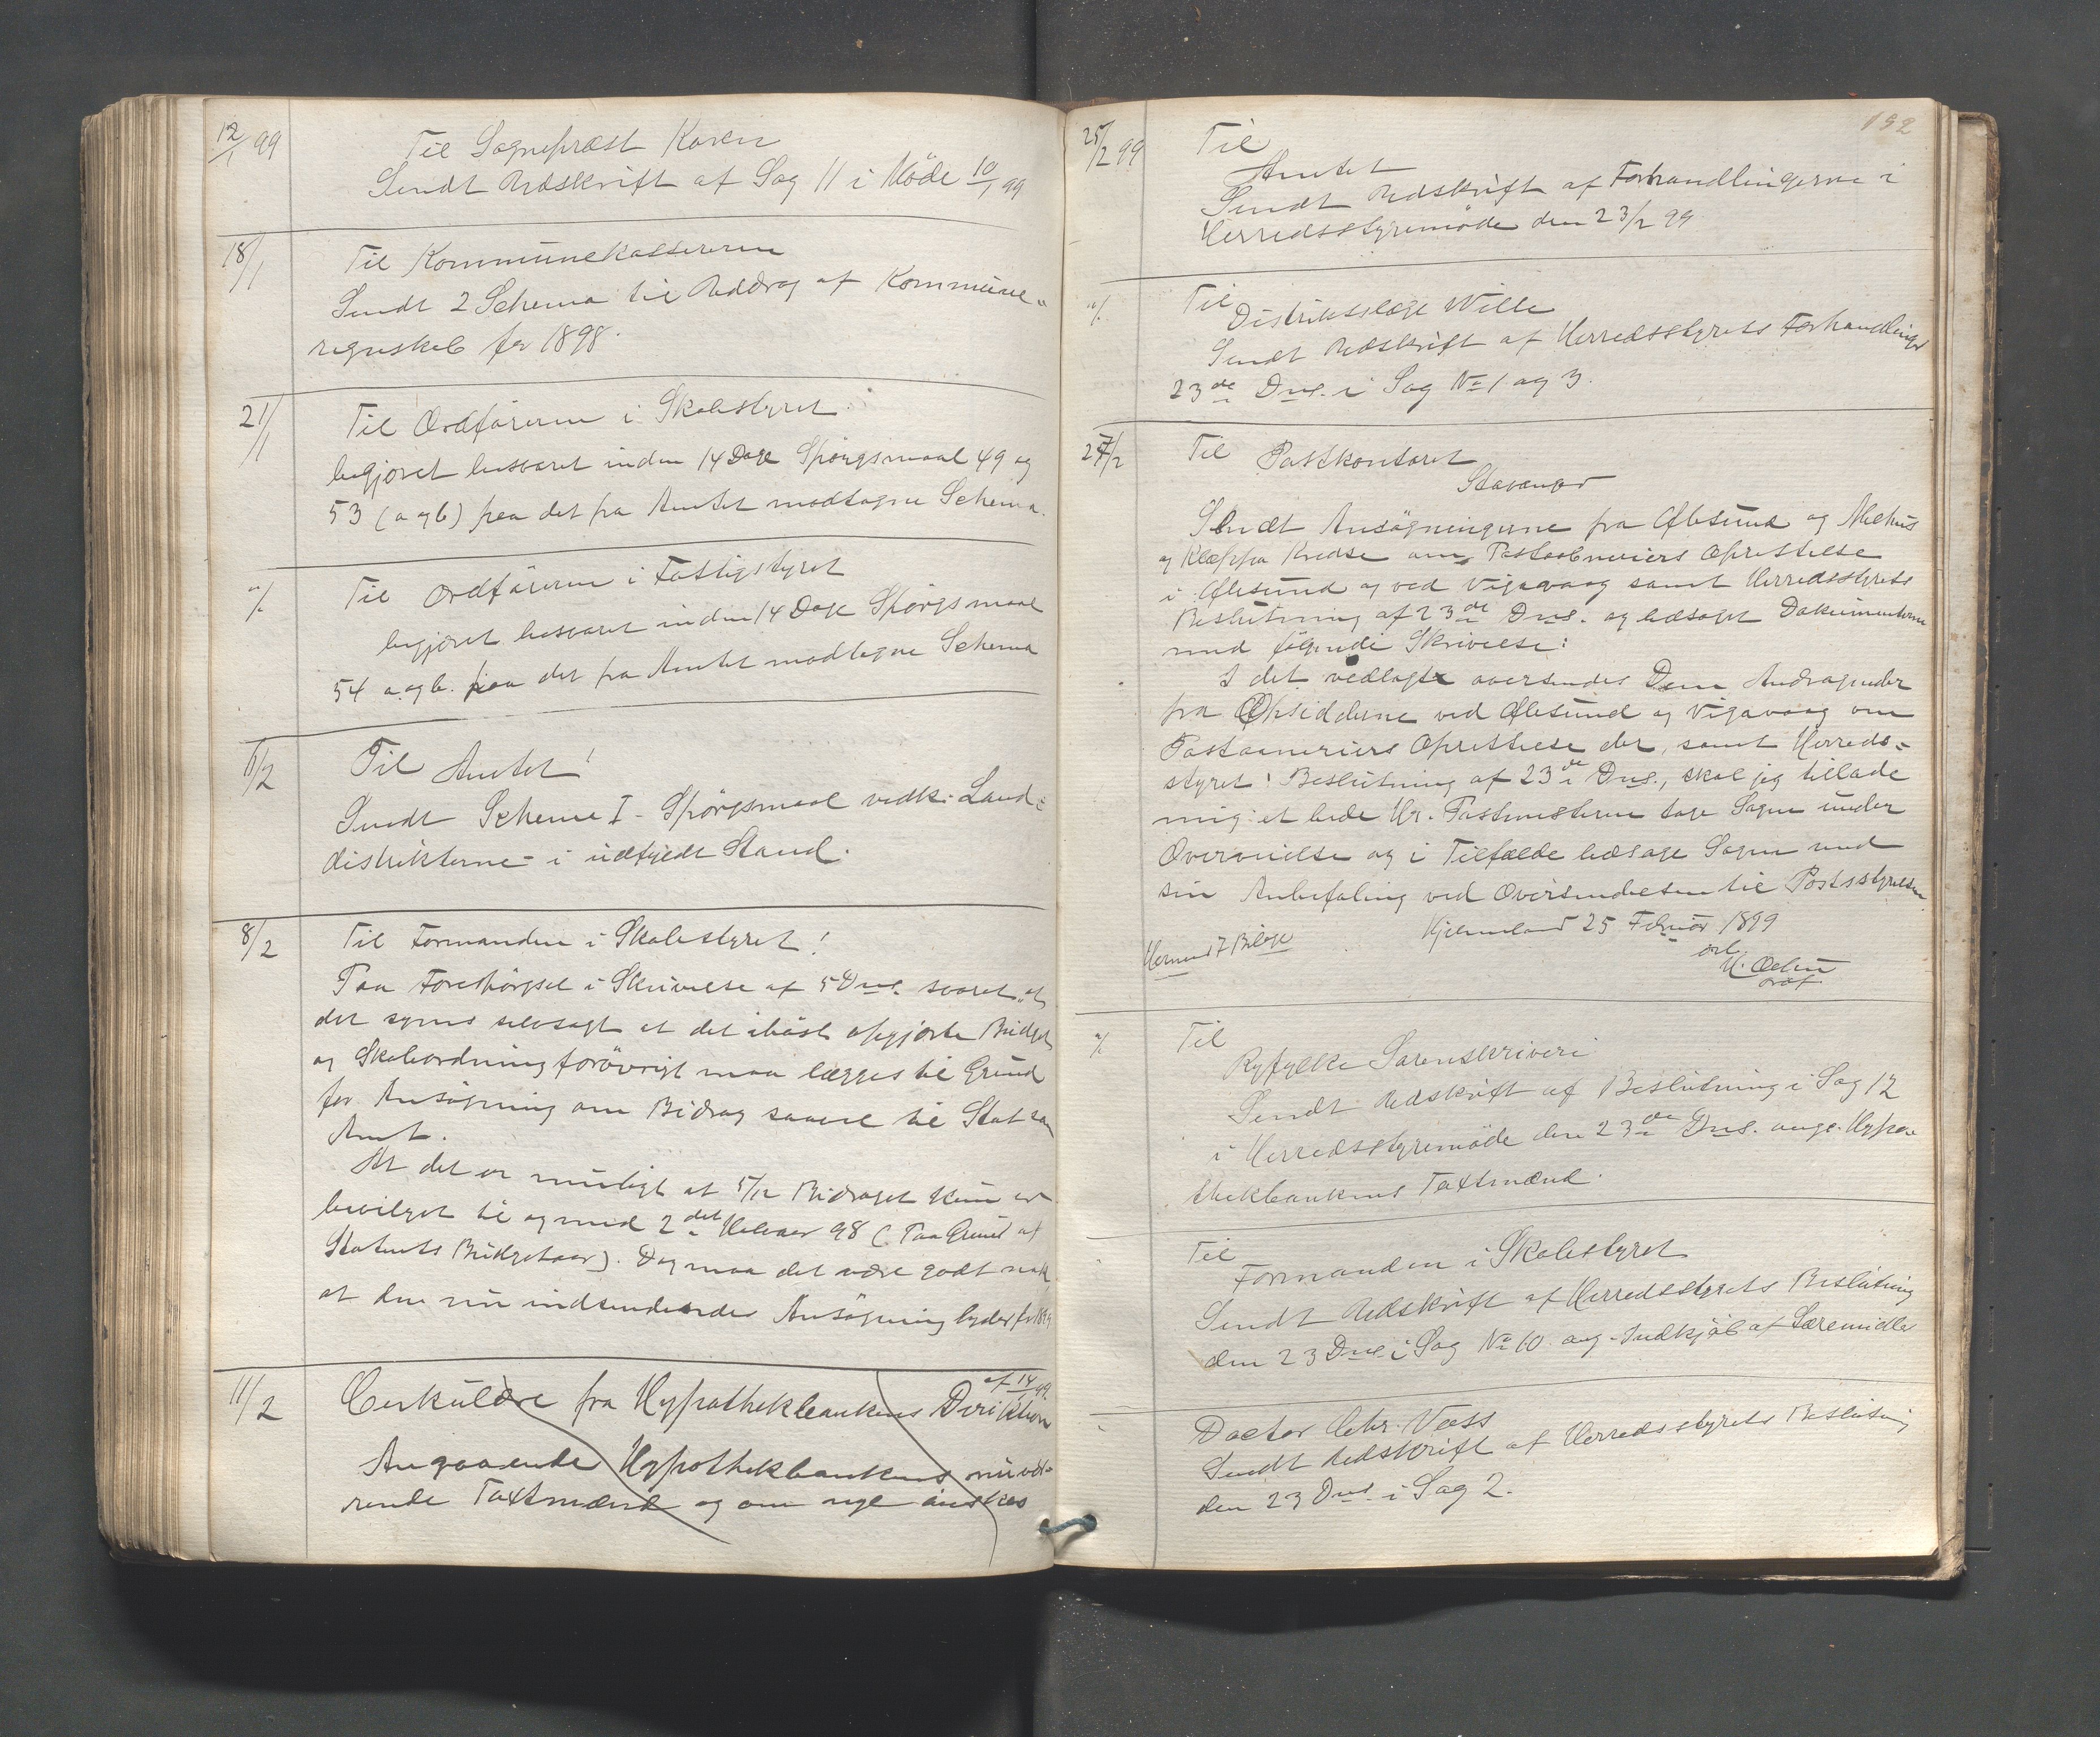 12/1 99
Til Sognepræst Koren
Sendt Udskrift af Sag 11 i Möde 10/1 99
18/1
Til Kommunekassereren
Sendt 2 Schema til Uddrag af Kommune-
regnskab for 1898.
21/1
Til Ordföreren i Skolestyret
begjæret besvaret inden 14 Dage Spörgsmaal 49 og
53 (a og b) paa det fra Amtet modtagne Schema.
"/"
Til Ordföreren i Fattigstyret
begjæret besvaret inden 14 Dage Spörgsmaal
54 a. og b. paa det fra Amtet modtagne Schema
6/2
Til Amtet!
Sendt Schema I - Spörgsmaal vedk: Land-
distrikterne - i udfyldt Stand.
8/2
Til Formanden i Skolestyret!
Paa Forespörgsel i Skrivelse af 5 Dns. svaret at
det synes selvsagt at det ihöst opgjorte Budget
og Skoleordning forövrigt maa lægges til Grund
for Ansögning om Bidrag saavel til Stat som
Amt.
At det er muligt at 5/12 Bidraget kun er
bevilget til og med 2det Halvaar 98 (Paa Grund af
Statens Budgetaar). Dog maa det være godt nok
at den nu indsendende Ansögning lyder for 1899
11/2
Cirkulære fra Hypothekbankens Direktion
af 14/1 99.
Angaaende Hypothekbankens nuvæ-
rende Taxtmænd og om nye önskes
152
25/2 99
Til
Amtet
Sendt Udskrift af Forhandlingerne i
Herredsstyremöde den 23/2 99
"/"
Til
Distriktslæge Wille
Sendt Udskrift af Herredsstyrets Forhandlinger
23de Dns. i Sag No 1 og 3.
27/2
Til Postkontoret
Stavanger
Sendt Ansögningerne fra Ølesund og
og Kleppa Kredse om Postaabneriers Oprettelse
i Ølesund og ved Vigavaag samt Herredsstyrets
Beslutning af 23de Dns. og ledsaget Dokumenterne
med fölgende Skrivelse:
I det vedlagte oversendes Dem Andragender
fra Opsidderne ved Ølesund og Vigavaag om
Postaaneriers Oprettelse der, samt Herreds-
styret's Beslutning af 23de Dns., skal jeg tillade
mig at bede Hr. Postmesteren tage Sagen under
Overveielse og i Tilfælde ledsage Sagen med
sin Anbefaling ved Oversendelsen til Poststyrelsen
Hjelmeland 25 Februar 1899
Hermed 7 Bilage
ærb.
Ordf.
"/"
Til
Ryfylke Sorenskriveri
Sendt Udskrift af Beslutning i Sag 12
i Herredsstyremöde den 23de Dns. ang. Hypo-
thekbankens Taxtmænd.
"
Til
Formanden i Skolestyret
Sendt Udskrift af Herredsstyrets Beslutning
den 23 Dns. i Sag No 10 ang. Indkjöb af Læremidler
"
Doctor Chr. Voss
Sendt Udskrift af Herredsstyrets Beslutning
den 23 Dns. i Sag 2.